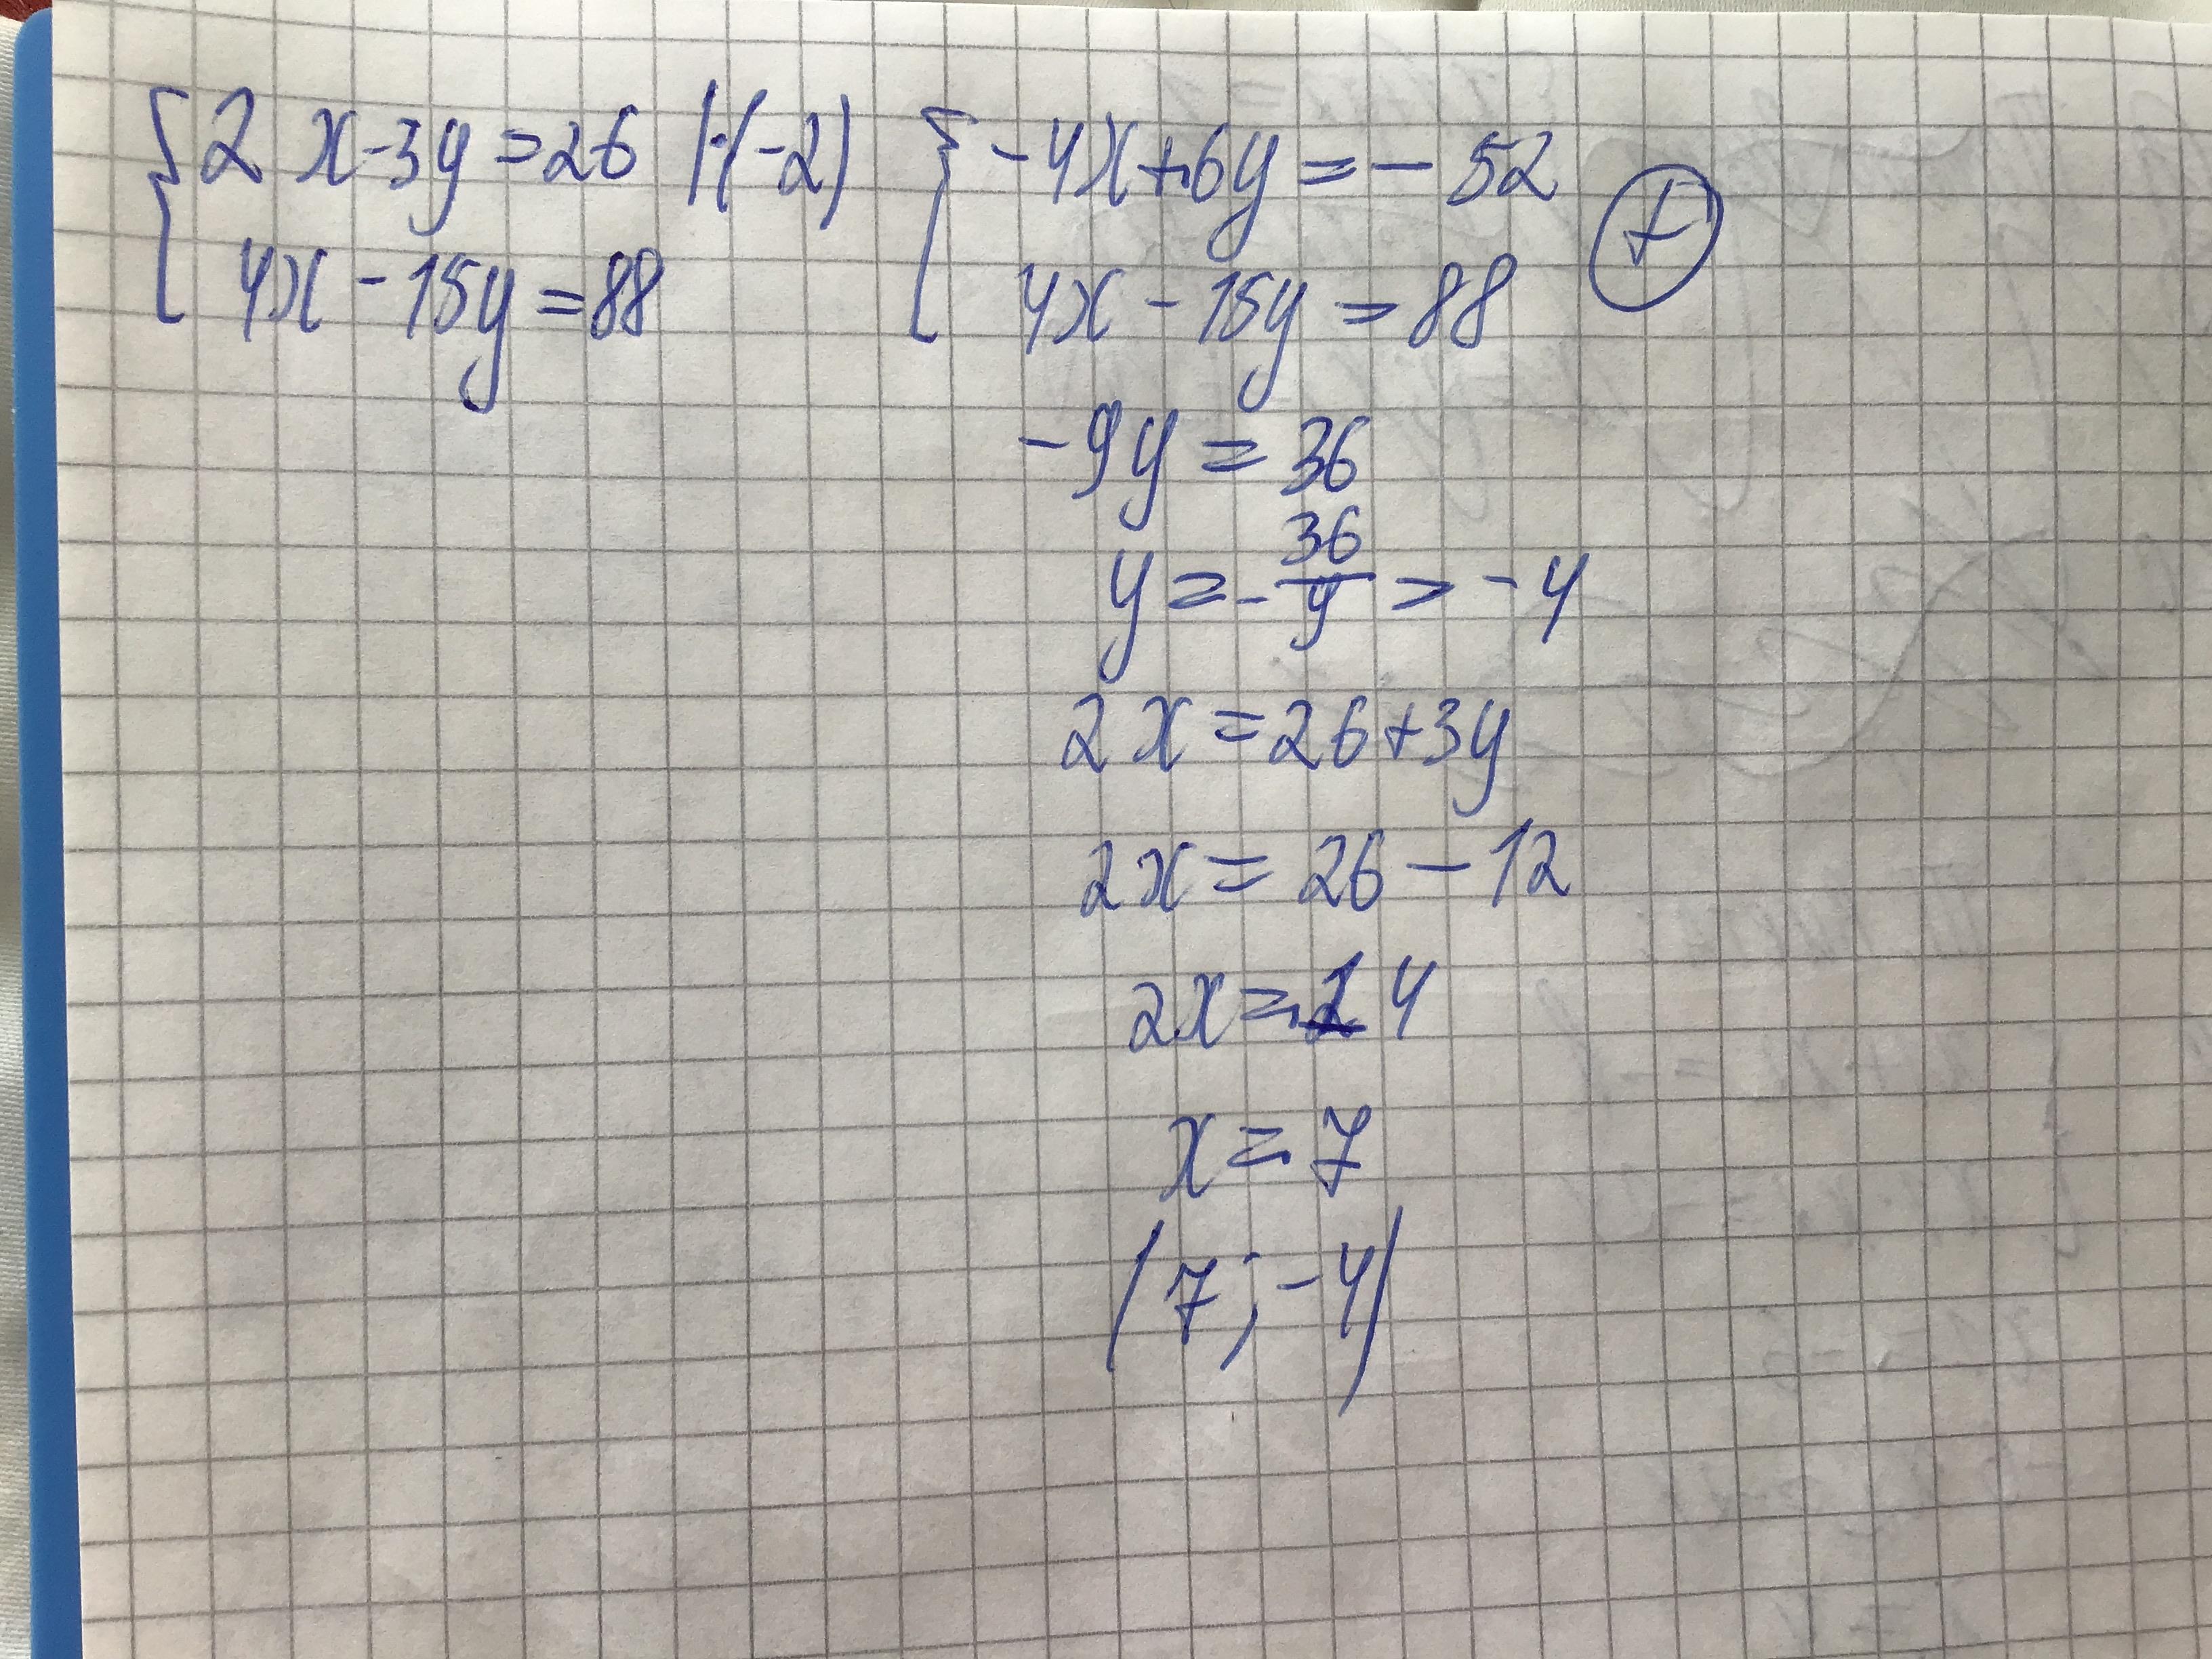 {2x-3y=26 |·(-2) {-4x+6y=-52
4x-15y=88 4x-15y=88 +
-9y=36
y=-36/9=-4
2x=26+3y
2x=26-12
2x=14
x=7
(7;-4)